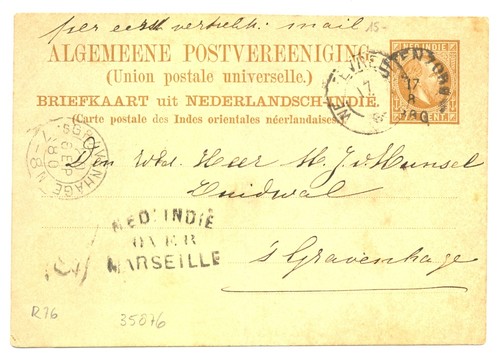 per eerst vertrekk: mail 15-
ALGEMEENE POSTVEREENIGING
(Union postale universelle.)
BRIEFKAART uit NEDERLANDSCH-INDIË.
(Carte postale des Indes orientales néerlandaises.)
NED. INDIE
CENT
17
8
880
'S GRAVENHAGE
SEP
80
Den Wed. Heer M. J. v Hunsel
Zuidwal
NED: INDIE
OVER
MARSEILLE
's Gravenhage
R.76
35876